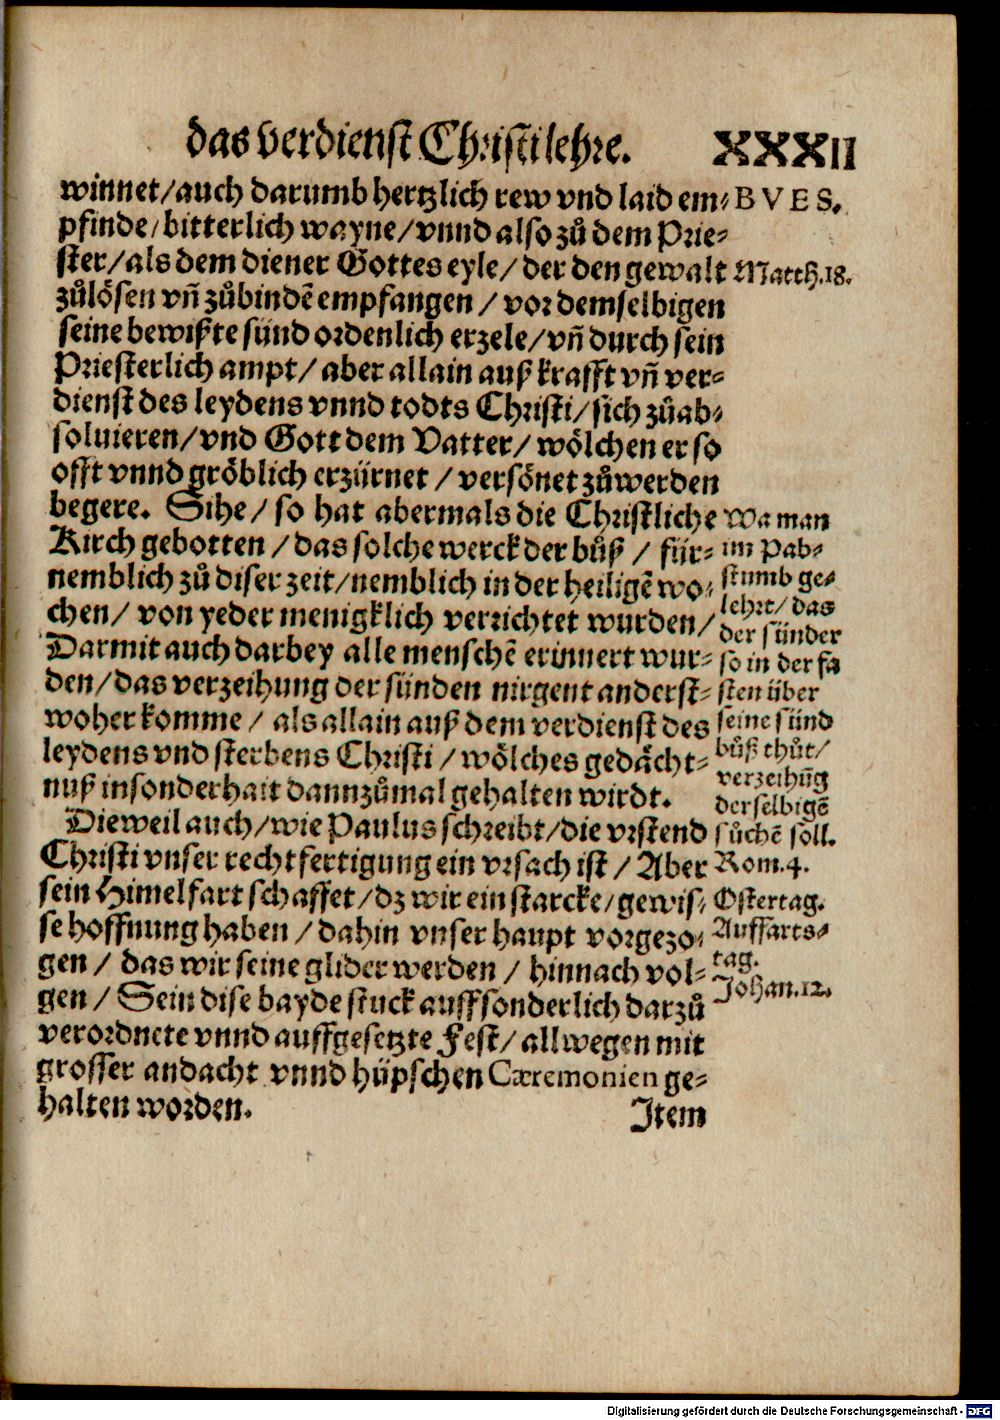 das verdienst Christi lehre. XXXII
winnet/auch darumb hertzlich rew vnd laid em⸗
pfinde/bitterlich wayne/vnnd also zů dem Prie⸗
ster/als dem diener Gottes eyle/der den gewalt
zůlösen vñ zůbindẽ empfangen/vor demselbigen
seine bewißte sünd ordenlich erzele/vñ durch sein
Priesterlich ampt/aber allain auß krafft vñ ver⸗
dienst des leydens vnnd todts Christi/sich zůab⸗
soluieren/vnd Gott dem Vatter/wölchen er so
offt vnnd gröblich erzürnet/versönet zůwerden
begere. Sihe/so hat abermals die Christliche
Kirch gebotten/das solche werck der bůß/für⸗
nemblich zů diser zeit/nemblich in der heiligẽ wo⸗
chen/von yeder menigklich verrichtet wurden/
Darmit auch darbey alle menschẽ erinnert wur⸗
den/das verzeihung der sünden nirgent anderst⸗
woher komme/als allain auß dem verdienst des
leydens vnd sterbens Christi/wölches gedächt⸗
nuß insonderhait dannzůmal gehalten wirdt.
Dieweil auch/wie Paulus schreibt/die vrstend
Christi vnser rechtfertigung ein vrsach ist/Aber
sein Himelfart schaffet/dz wir ein starcke/gewis⸗
se hoffnung haben/dahin vnser haupt vorgezo⸗
gen/das wir seine glider werden/hinnach vol⸗
gen/Sein dise bayde stuck auffsonderlich darzů
verordnete vnnd auffgesetzte Fest/allwegen mit
grosser andacht vnnd hüpschen Cæremonien ge⸗
halten worden.
Item
BVES.
Matth.18.
Wa man
im Pab⸗
stumb ge⸗
lehrt/das
der sünder
so in der fa
sten über
seine sünd
bůß thůt/
verzeihũg
derselbigẽ
sůchẽ soll.
Rom.4.
Ostertag.
Auffarts⸗
tag.
Johan.12.
Digitalisierung gefördert durch die Deutsche Forschungsgemeinschaft - DFG